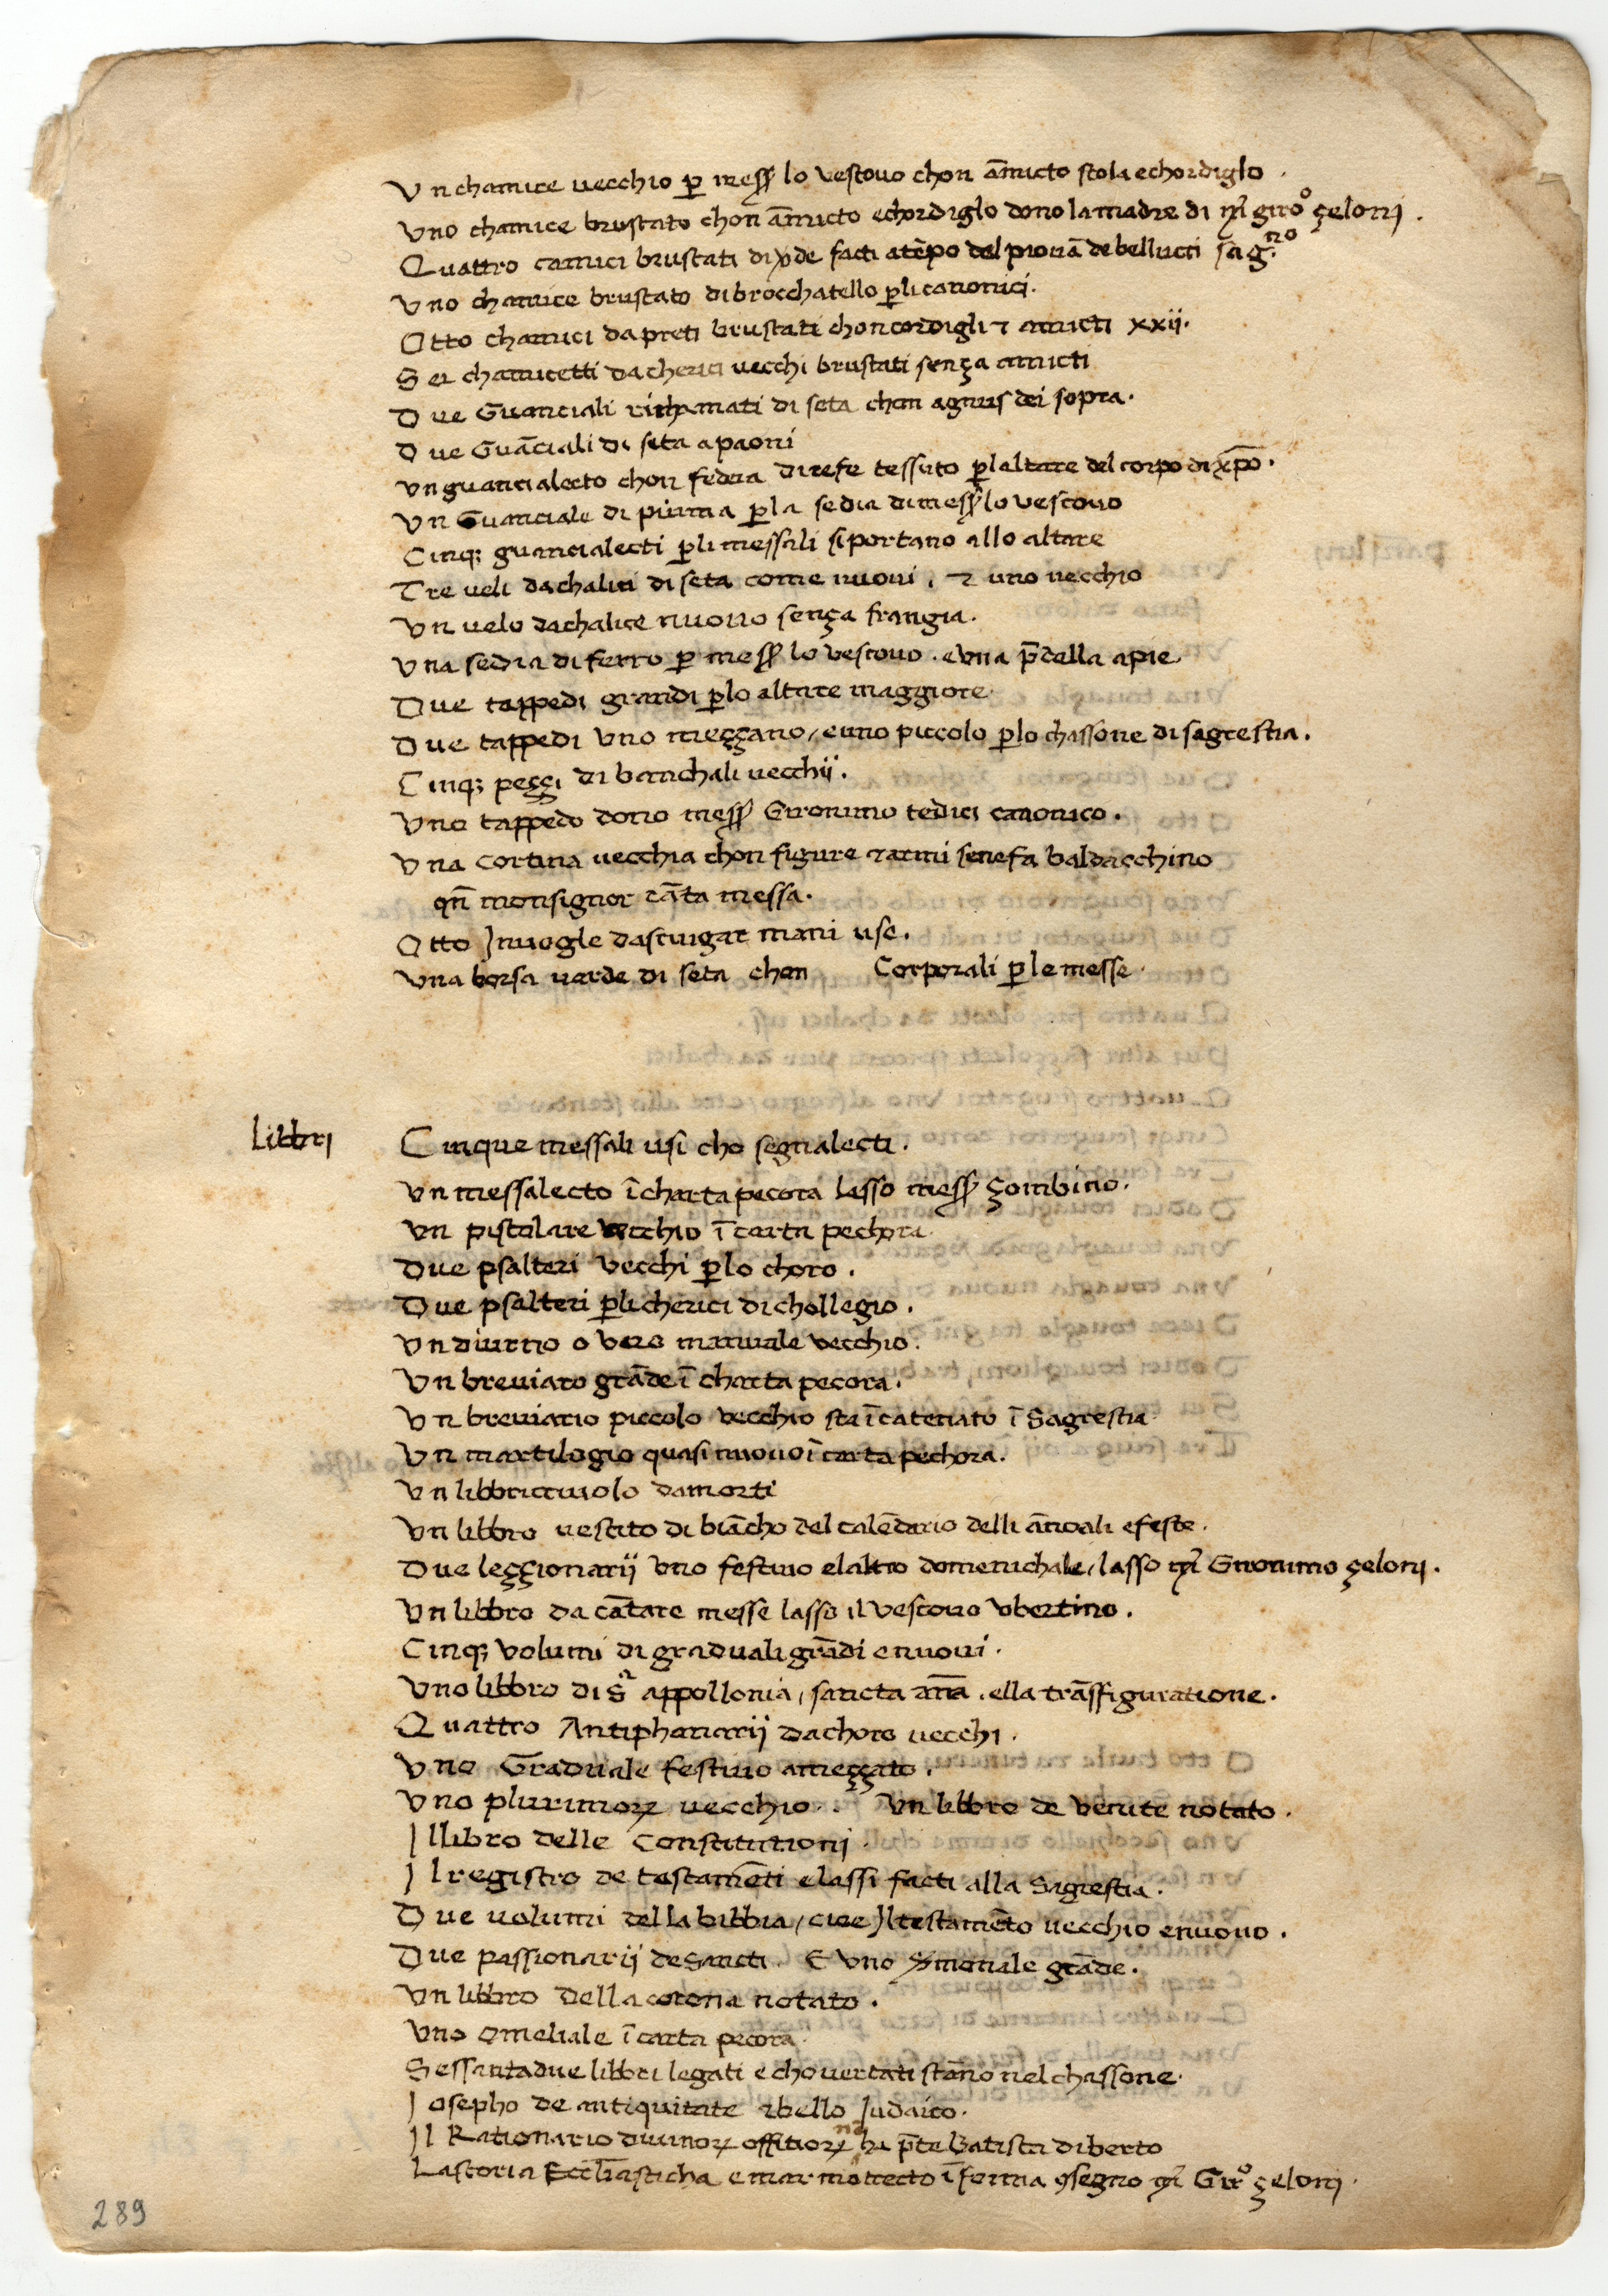 Vn chamice vecchio ꝑ mess̃ lo vescouo chon āmicto stola echordiglo .
Vno chamice brustato chon āmicto echordiglo dono lamadre di m̃ giro° çelonj .
Quattro camici brustati di v̊de facti atēpo del piouā de bellucci sag.no
Vno chamice brustato dibrocchatello ꝑlicanonici .
Otto chamici dapreti brustati choncordigli ⁊ amicti xxij .
Sei chamicetti dacherici vecchi brustati sença amicti
Due Guanciali richamati di seta chon agnus dei sopra .
Due Guāciali di seta apaoni
Vn guancialecto chon federa direfe tessuto ꝑlaltare del corpo di xp̄o .
Vn Guanciale di piuma ꝑla sedia dimess̃ lo vescouo
Cinqȝ guancialecti ꝑlimessali siportano allo altare
Tre ueli dachalici di seta come nuoui , ⁊ uno vecchio
Vn uelo dachalice nuouo sença frangia .
Vna sedia di ferro ꝑ mess̃ lo vescouo . evna p̄della apie
Due tappedi grandi ꝑlo altare maggiore
Due tappedi vno meççano / euno piccolo ꝑlo chassone di sagrestia .
Cinqȝ peççi di banchali vecchij .
Vno tappedo dono mess̃ Gironimo tedici canonico .
Vna cortina vecchia chon figure ⁊armi senefa baldacchino
qn̄ monsignor cāta messa .
Otto Jnuogle dasciugar mani use .
Vna borsa verde di seta chon Corporali ꝑle messe .
Librj
Cinque messali usi cho segnalecti .
Vn messalecto ī charta pecora lasso mess̃ çombino .
Vn pistolare vecchio ī carta pechora
Due psalteri vecchi ꝑlo choro .
Due psalteri ꝑlicherici di chollegio .
Vn diurno o vero manuale vecchio .
Vn breuiaro grāde ī charta pecora .
Vn breuiario piccolo vecchio sta īcatenato ī Sagrestia
Vn martilogio quasi nuouo ī carta pechora .
Vn libbricciuolo damorti
Vn libbro vestito di biācho del calēdario delli ānoali efeste .
Due leççionarij vno festiuo elaltro domenichale / lasso m̃ Gironimo çelonj .
Vn libbro da cātare messe lasso il vescouo vbertino .
Cinqȝ volumi di graduali grādi enuoui .
Vno libbro di S.ᵃ appollonia , sancta ān̄a . ella trāsfiguratione .
Quattro Antiphanarij dachoro uecchi .
Vno Graduale festiuo ameççato .
Vno plurimoꝝ uecchio . Vn libbro de venite notato .
Jllibro delle Constitutionj .
Jl registro de testamēti elassi facti alla Sagrestia .
Due uolumi della bibbia / cioe Jltestamēto vecchio enuouo .
Due passionarij de Sancti . E vno grāde .
Vn libbro della corona notato .
Vno omeliale ī carta pecora
Sessantadue libbri legati echouertati stāno nel chassone .
Josepho de antiquitate ⁊bello Judaico .
Jl Rationario diuinoꝝ offitioꝝ ha p̄te Batista diberto
Lastoria Eccl̄iasticha ī forma ꝯsegno m̃ Gir° çelonj .
289